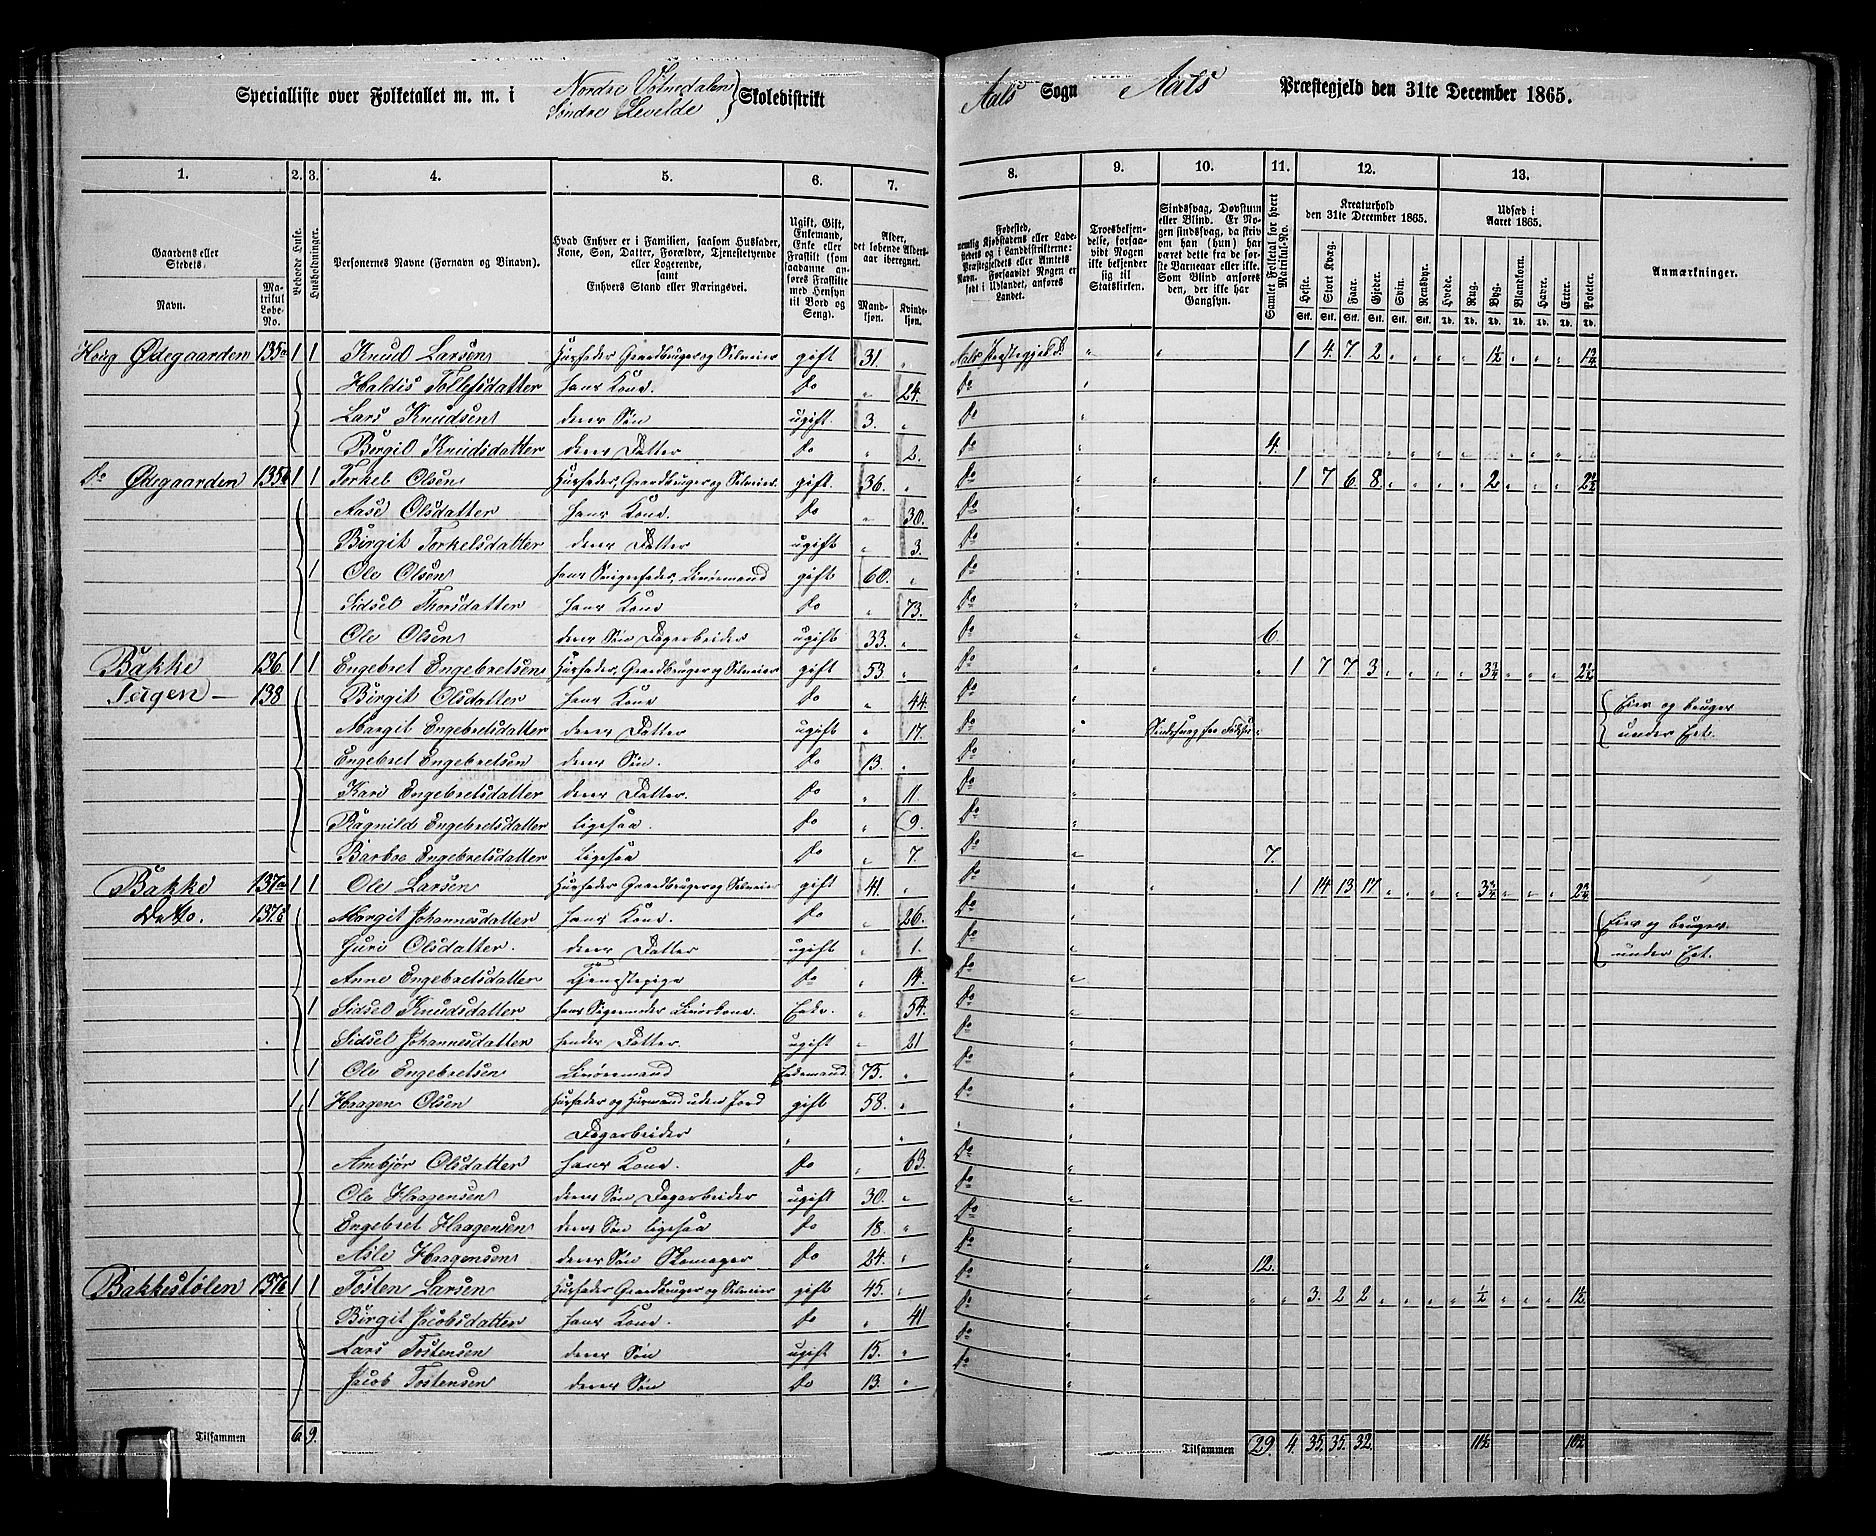 Specialliste over Folketallet m. m. i Nordre Votnedalen Skoledistrikt Aals Sogn Aals Præstegjeld den 31te December 1865.
Søndre Levelde
1. 2. 3. 4. 5. 6. 7. 8. 9. 10. 11. 12. 13.
Gaardens eller Stedets
Navn.
Matrikul Løbe-No.
Beboede Huse.
Husholdninger.
Personernes Navne (Fornavn og Binavn).
Hvad Enhver er i Familien, saasom Husfader, Kone, Søn, Datter, Forældre, Tjenestetyende eller Logerende, samt Enhvers Stand eller Næringsvei.
Ugift, Gift, Enkemand, Enke eller Fraskilt (som saadanne anføres Fraskilte med Hensyn til Bord og Seng).
Alder, det løbende Aldersaar iberegnet.
Mandkjøn. Kvindekjøn.
Fødested, nemlig Kjøbstadens eller Ladestedets og i Landdistrikterne: Præstegjeldets eller Amtets Navn. Forsaavidt Nogen er født i Udlandet, anføres Landet.
Troesbekjendelse, forsaavidt Nogen ikke bekjender sig til Statskirken.
Sindssvag, Døvstum eller Blind. Er Nogen sindssvag, da skriv om han (hun) har været dette fra de første Barneaar eller ikke. Som Blind anføres den, der ikke har Gangsyn.
Samlet Folketal for hvert Matrikul-No.
Kreaturhold den 31te December 1865.
Heste. Stort Kvæg. Faar. Gjeder. Svin. Rensdyr.
Udsæd i Aaret 1865.
Hvede. Rug. Byg. Blandkorn. Havre. Erter. Poteter.
Anmærkninger.
Houg Ødegaarden 135a 1 1 Knud Larsen Husfader Gaardbruger og Selveier gift 31. „ Aals Præstegjeld „ „ 1 4. 7 2 „ „ „ „ 1½ „ „ „ 1¾
Haldis Tollefsdatter hans Kone. do „ 24. do „
Lars Knudsen deres Søn ugift 3. „ do „
Birgit Knudsdatter deres Datter „ 2. do 4.
do Ødegaarden 135b 1 1 Torkel Olsen Husfader, Gaardbruger og Selveier gift. 36. „ do „ „ „ 1 7 6 8 „ „ „ „ 2 „ „ „ 2½
Aase Olsdatter hans Kone. do „ 30. do „
Birgit Torkelsdatter deres Datter ugift „ 3. do „
1 Ole Olsen hans Svigerfader, Livøremand gift 60. „ do „
Sidsel Thorsdatter hans Kone do „ 73. do „
Ole Olsen deres Søn Dagarbeider ugift 33. „ do „ 6.
Bakke 136 1 1 Engebret Engebretsen Husfader, Gaardbruger og Selveier gift 53. „ do „ „ „ 1 7 7 3 „ „ „ „ 3¼ „ „ „ 2½
Teigen — 138 Birgit Olsdatter hans Kone do „ 44. do „ Eies og bruges
Margit Engebretsdatter deres Datter ugift „ 17. do „ Sindssvag fra Fødsel „ under Eet.
Engebret Engebretsen deres Søn. do 13. „ do „
Kari Engebretsdatter deres Datter. do „ 11. do „
Ragnild Engebretsdatter ligesaa. do „ 9. do „
Barbro Engebretsdatter ligesaa do „ 7. do „ 7.
Bakke 137a 1 1 Ole Larsen Husfader Gaardbruger og Selveier gift 41. „ do „ „ „ 1 14 13 17 „ „ „ „ 3¾ „ „ „ 2¾
Ditto. 137c Margit Johannesdatter hans Kone. do „ 26. do Eies og bruges
Guri Olsdatter. deres Datter ugift „ 1. do „ under Eet.
Anne Engebretsdatter Tjenestepige do „ 14. do „
1 Sidsel Knudsdatter hans Svigermoder Livørskone. Enke. „ 54. do „
Sidsel Johannesdatter hendes Datter. ugift „ 21 do „
1 Ole Engebretsen Livøremand Enkemand. 75. „ do „
1 1 Haagen Olsen Husfader og Husmand uden Jord gift 58. „ do „
Dagarbeider „ „ „ „
Ambjør Olsdatter hans Kone. do „ 63. do „
Ole Haagensen deres Søn Dagarbeider ugift 30. „ do „
Engebret Haagensen deres Søn ligesaa do 18. „ do „
Asle Haagensen deres Søn Skomager do 24. „ do „ „ 12.
Bakkestølen 137b 1 1 Tosten Larsen Husfader Gaardbruger og Selveier gift 45. „ do „ „ „ „ 3. 2 2 „ „ „ „ ½ „ „ „ 1½
Birgit Jacobsdatter hans Kone. do „ 41 do „
Lars Tostensen deres Søn ugift 15. „ do „
Jacob Tostensen deres Søn do 13. „ do „
Tilsammen 6. 9. Tilsammen 29. 4 35. 35. 32. 11½ 10½